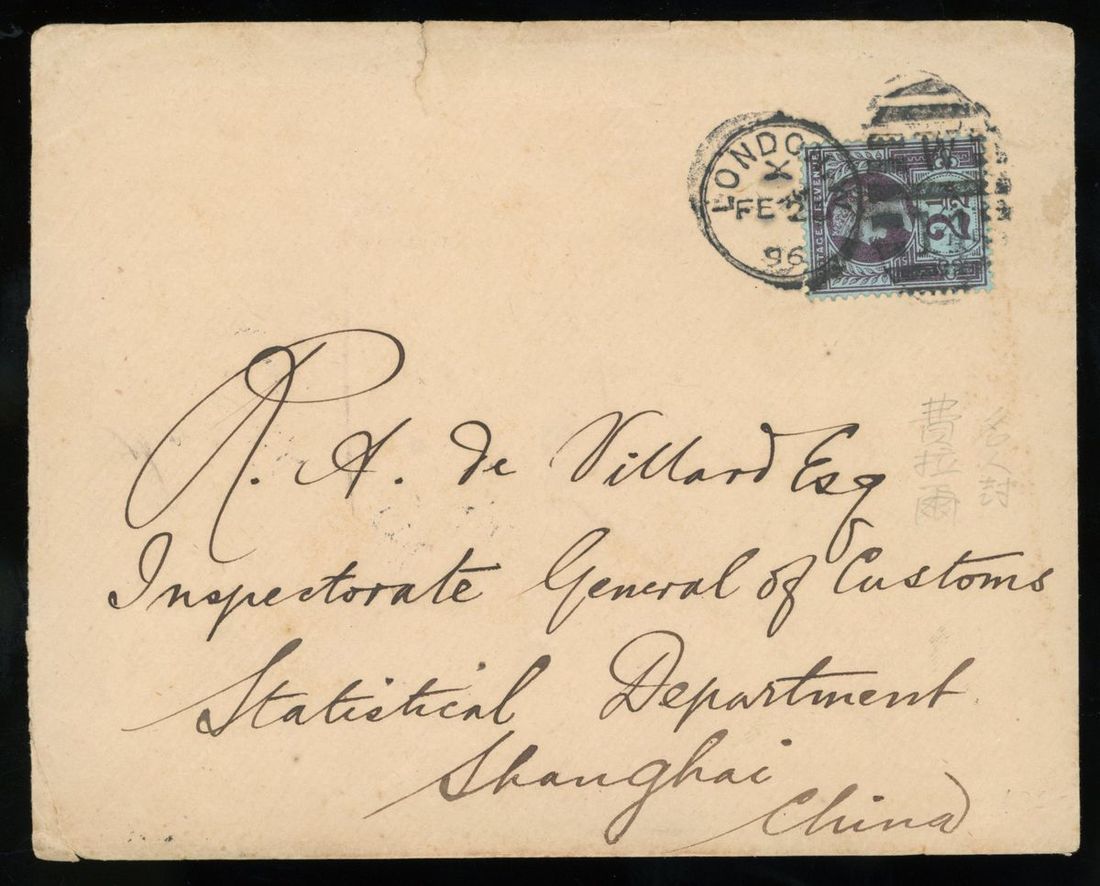 LONDON
X
FE 2
96
W
POSTAGE & REVENUE
2½
R. A. de Villard Esq
Inspectorate General of Customs
Statistical Department
Shanghai
China
名人封
費拉爾